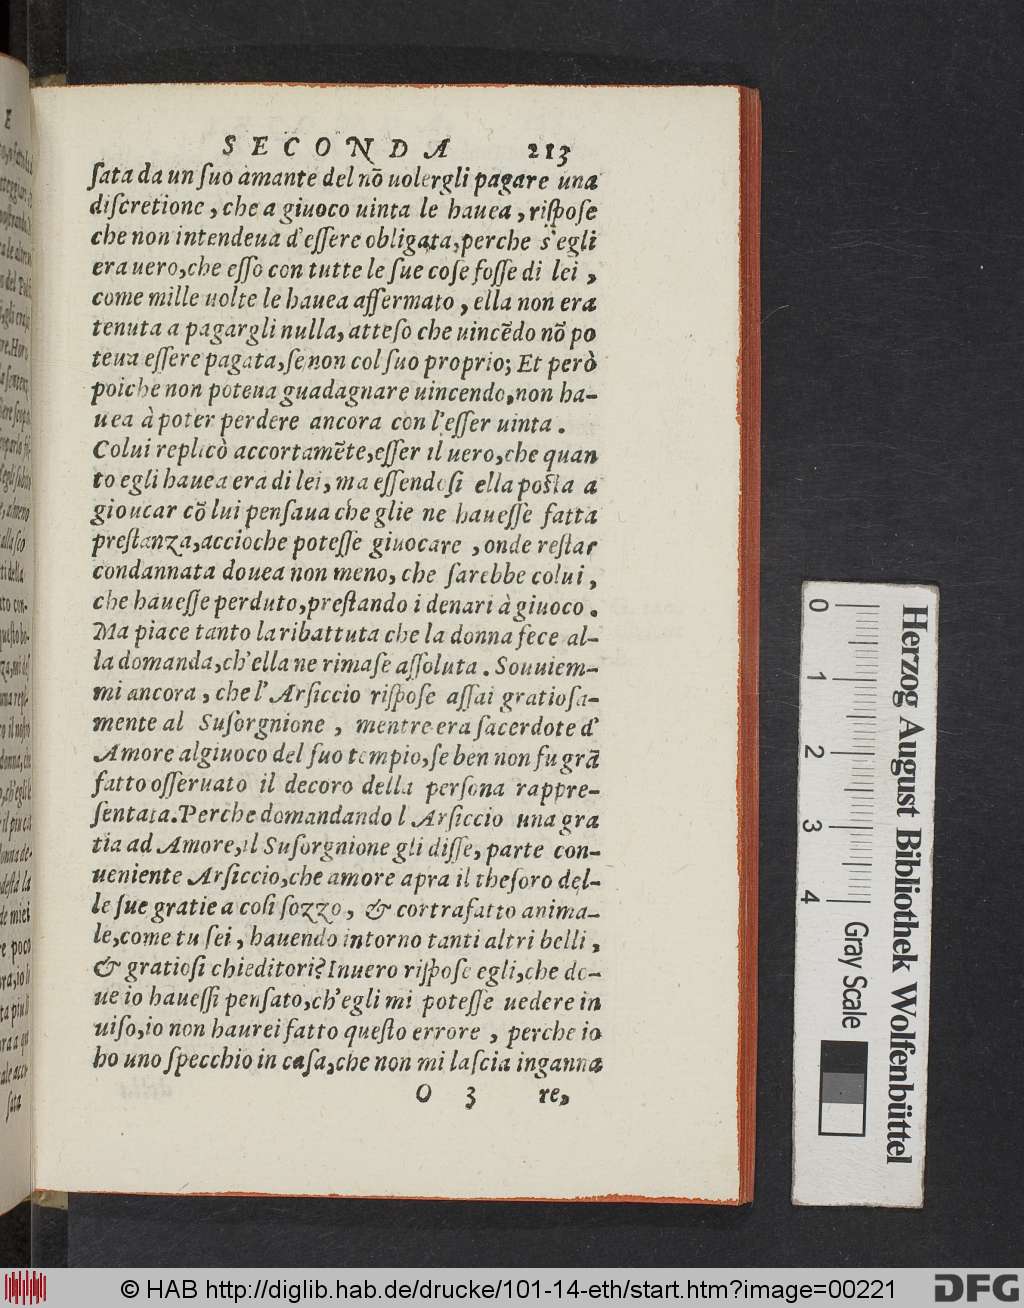 SECONDA 213
ſata da un ſuo amante del nõ uolergli pagare una
diſcretione, che a giuoco uinta le hauea, riſpoſe
che non intendeua d'eſſere obligata, perche s'egli
era uero, che eſſo con tutte le ſue coſe foſſe di lei,
come mille uolte le hauea affermato, ella non era
tenuta a pagargli nulla, atteſo che uincẽdo nõ po
teua eſſere pagata, ſe non col ſuo proprio; Et però
poiche non poteua guadagnare uincendo, non ha-
uea à poter perdere ancora con l'eſſer uinta.
Colui replicò accortamẽte, eſſer il uero, che quan
to egli hauea era di lei, ma eſſendoſi ella poſta a
gioucar cõ lui penſaua che glie ne haueſſe fatta
preſtanza, accioche poteſſe giuocare, onde reſtar
condannata douea non meno, che ſarebbe colui,
che haueſſe perduto, preſtando i denari à giuoco.
Ma piace tanto la ribattuta che la donna fece al-
la domanda, ch'ella ne rimaſe aſſoluta. Souuiem-
mi ancora, che l'Arſiccio riſpoſe aſſai gratioſa-
mente al Suſorgnione, mentre era ſacerdote d'
Amore al giuoco del ſuo tempio, ſe ben non fu grã
fatto oſſeruato il decoro della perſona rappre-
ſentata. Perche domandando l Arſiccio una gra
tia ad Amore, il Suſorgnione gli diſſe, parte con-
ueniente Arſiccio, che amore apra il theſoro del-
le ſue gratie a coſi ſozzo, & contrafatto anima-
le, come tu ſei, hauendo intorno tanti altri belli,
& gratioſi chieditori? Inuero riſpoſe egli, che do-
ue io haueſſi penſato, ch'egli mi poteſſe uedere in
uiſo, io non haurei fatto queſto errore, perche io
ho uno ſpecchio in caſa, che non mi laſcia inganna
O 3 re,
ſata
Herzog August Bibliothek Wolfenbüttel
0 1 2 3 4
Gray Scale
© HAB http://diglib.hab.de/drucke/101-14-eth/start.htm?image=00221
DFG